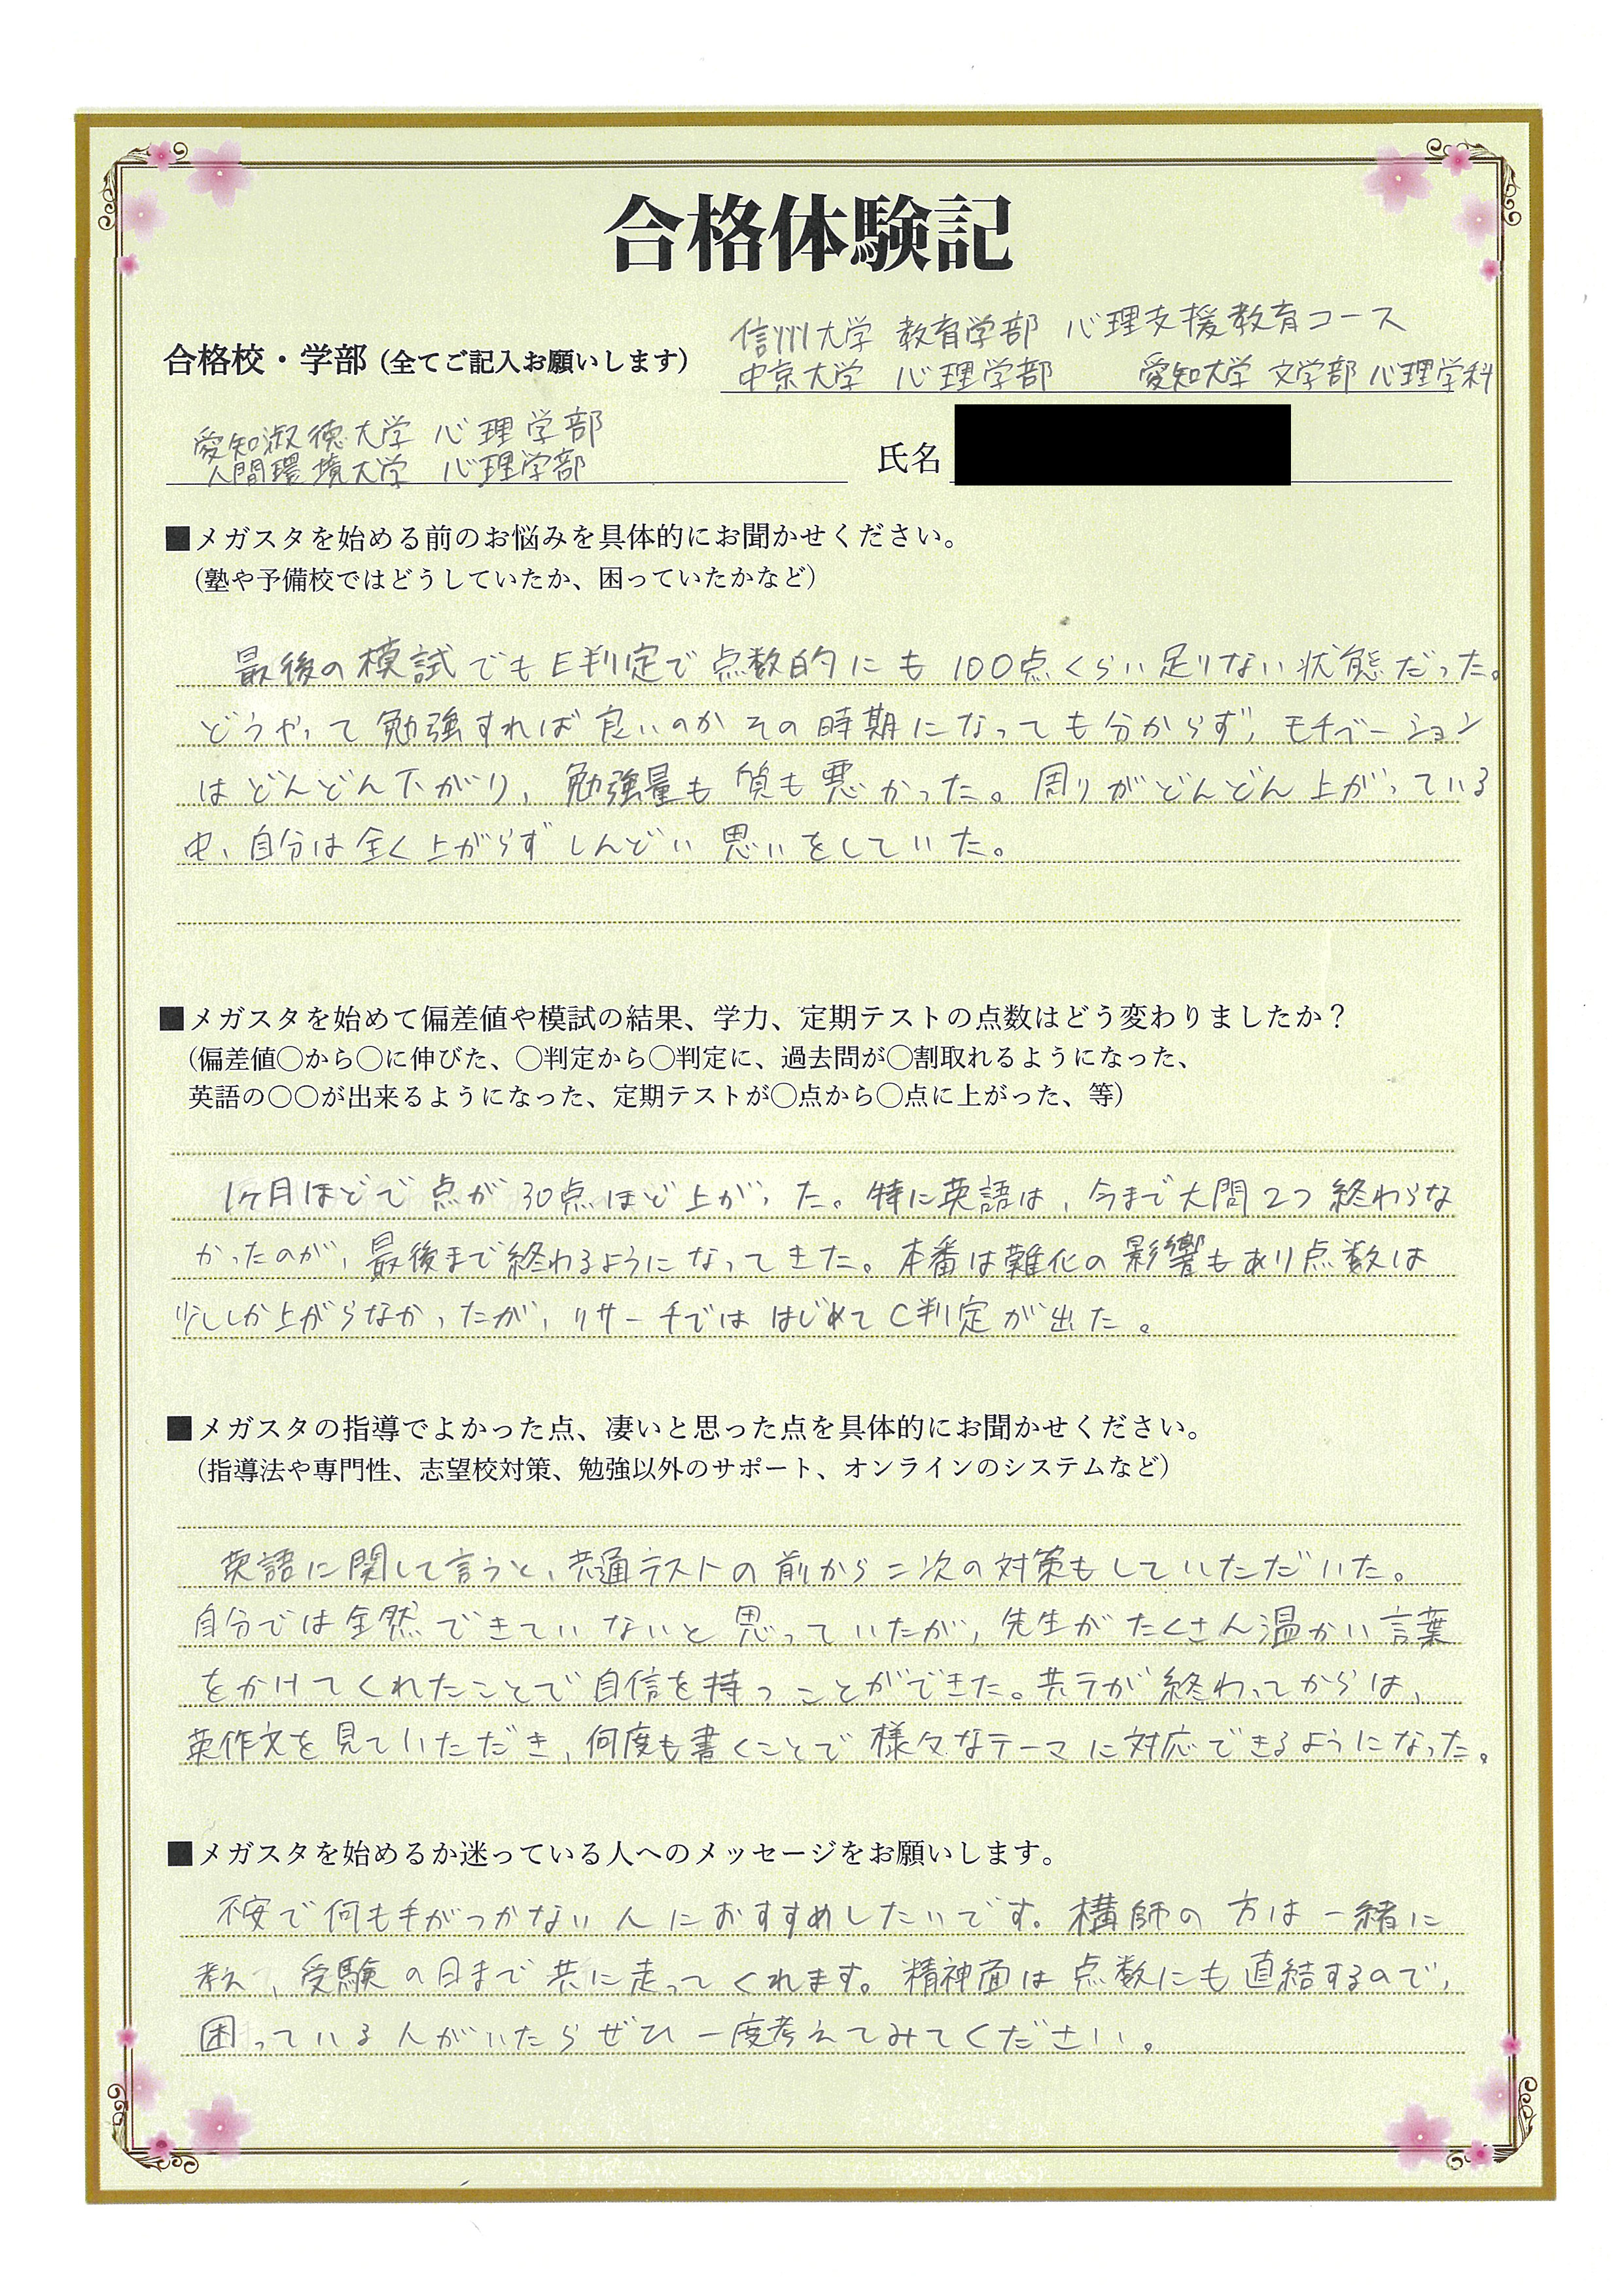 合格体験記
合格校・学部（全てご記入お願いします）
信州大学 教育学部 心理支援教育コース
中京大学 心理学部 愛知大学 文学部 心理学科
愛知淑徳大学 心理学部
人間環境大学 心理学部
氏名
■メガスタを始める前のお悩みを具体的にお聞かせください。
（塾や予備校ではどうしていたか、困っていたかなど）
最後の模試でもE判定で点数的にも100点くらい足りない状態だった。
どうやって勉強すれば良いのかその時期になっても分からず、モチベーション
はどんどん下がり、勉強量も質も悪かった。周りがどんどん上がっている
中、自分は全く上がらずしんどい思いをしていた。
■メガスタを始めて偏差値や模試の結果、学力、定期テストの点数はどう変わりましたか？
（偏差値〇から〇に伸びた、〇判定から〇判定に、過去問が〇割取れるようになった、
英語の〇〇が出来るようになった、定期テストが〇点から〇点に上がった、等）
1ヶ月ほどで点が30点ほど上がった。特に英語は、今まで大問2つ終わらな
かったのが、最後まで終わるようになってきた。本番は難化の影響もあり点数は
少ししか上がらなかったが、リサーチでははじめてC判定が出た。
■メガスタの指導でよかった点、凄いと思った点を具体的にお聞かせください。
（指導法や専門性、志望校対策、勉強以外のサポート、オンラインのシステムなど）
英語に関して言うと、共通テストの前から二次の対策もしていただいた。
自分では全然できていないと思っていたが、先生がたくさん温かい言葉
をかけてくれたことで自信を持つことができた。共テが終わってからは、
英作文を見ていただき、何度も書くことで様々なテーマに対応できるようになった。
■メガスタを始めるか迷っている人へのメッセージをお願いします。
不安で何も手がつかない人におすすめしたいです。講師の方は一緒に
考え、受験の日まで共に走ってくれます。精神面は点数にも直結するので、
困っている人がいたらぜひ一度考えてみてください。